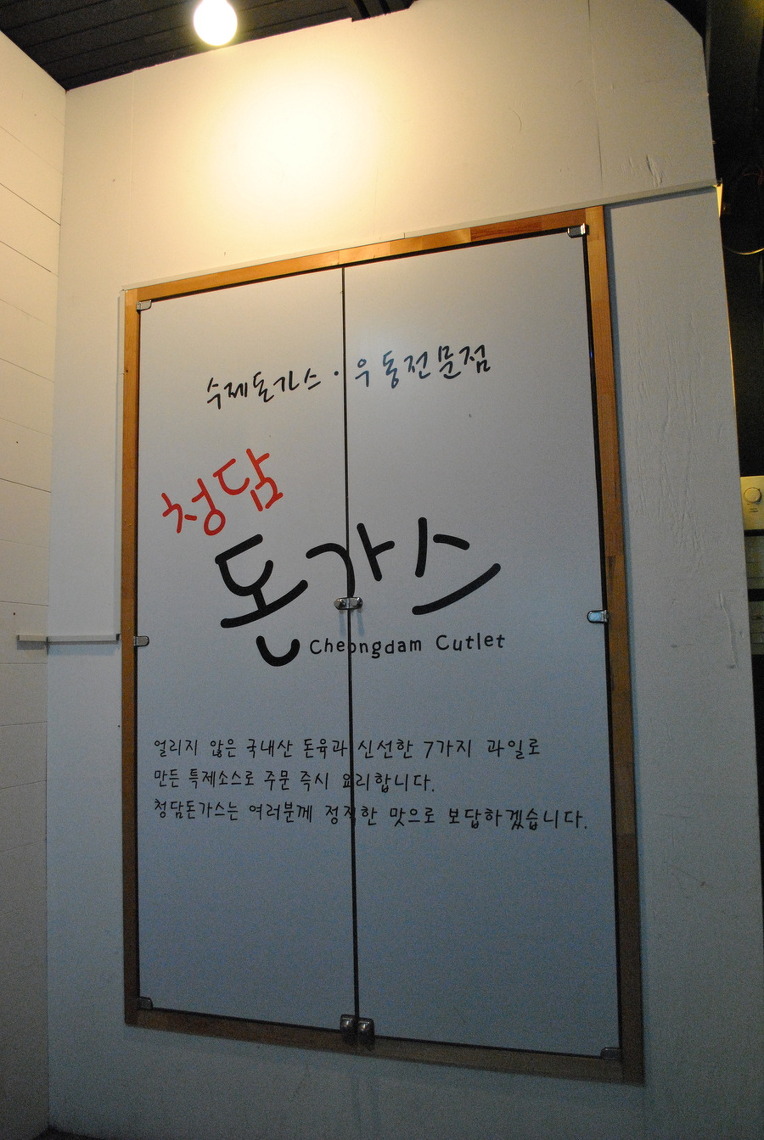 수제돈가스·우동전문점
청담
돈가스
Cheongdam Cutlet
얼리지 않은 국내산 돈육과 신선한 7가지 과일로
만든 특제소스로 주문 즉시 요리합니다.
청담돈가스는 여러분께 정직한 맛으로 보답하겠습니다.